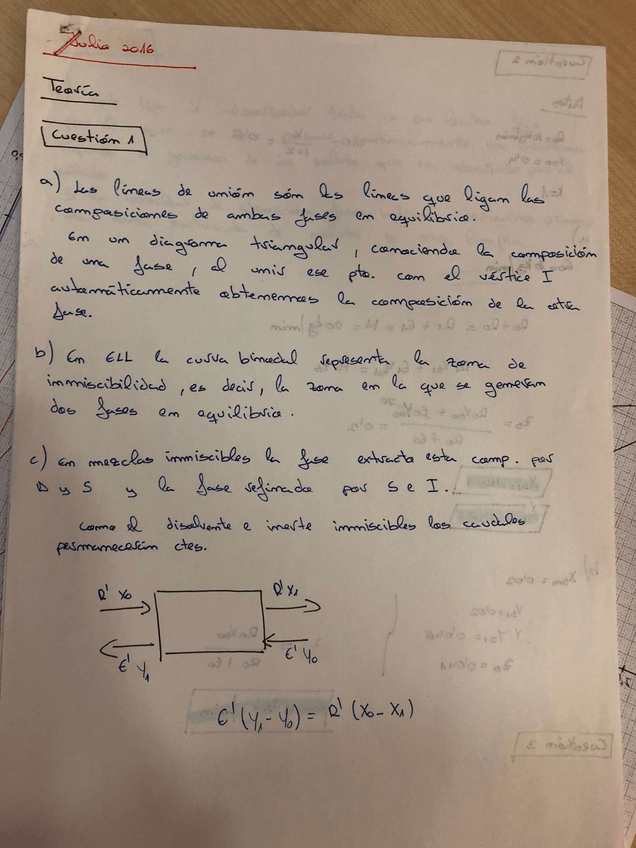 Julio 2016
Teoría
Cuestión 1
a) Las líneas de unión són las líneas que ligan las
composiciones de ambas fases en equilibrio.
En un diagrama triangular, conociendo la composición
de una fase, al unir ese pto. con el vértice I
automáticamente obtenemos la composición de la otra
fase.
b) En ELL la curva binodal representa la zona de
inmiscibilidad, es decir, la zona en la que se generan
dos fases en equilibrio.
c) En mezclas inmiscibles la fase extracto esta comp. por
D y S y la fase refinado por S e I.
Como el disolvente e inerte inmiscibles los caudales
permanecerán ctes.
R' X0 R' X1
E' Y1 E' Y0
E' (Y1 - Y0) = R' (X0 - X1)